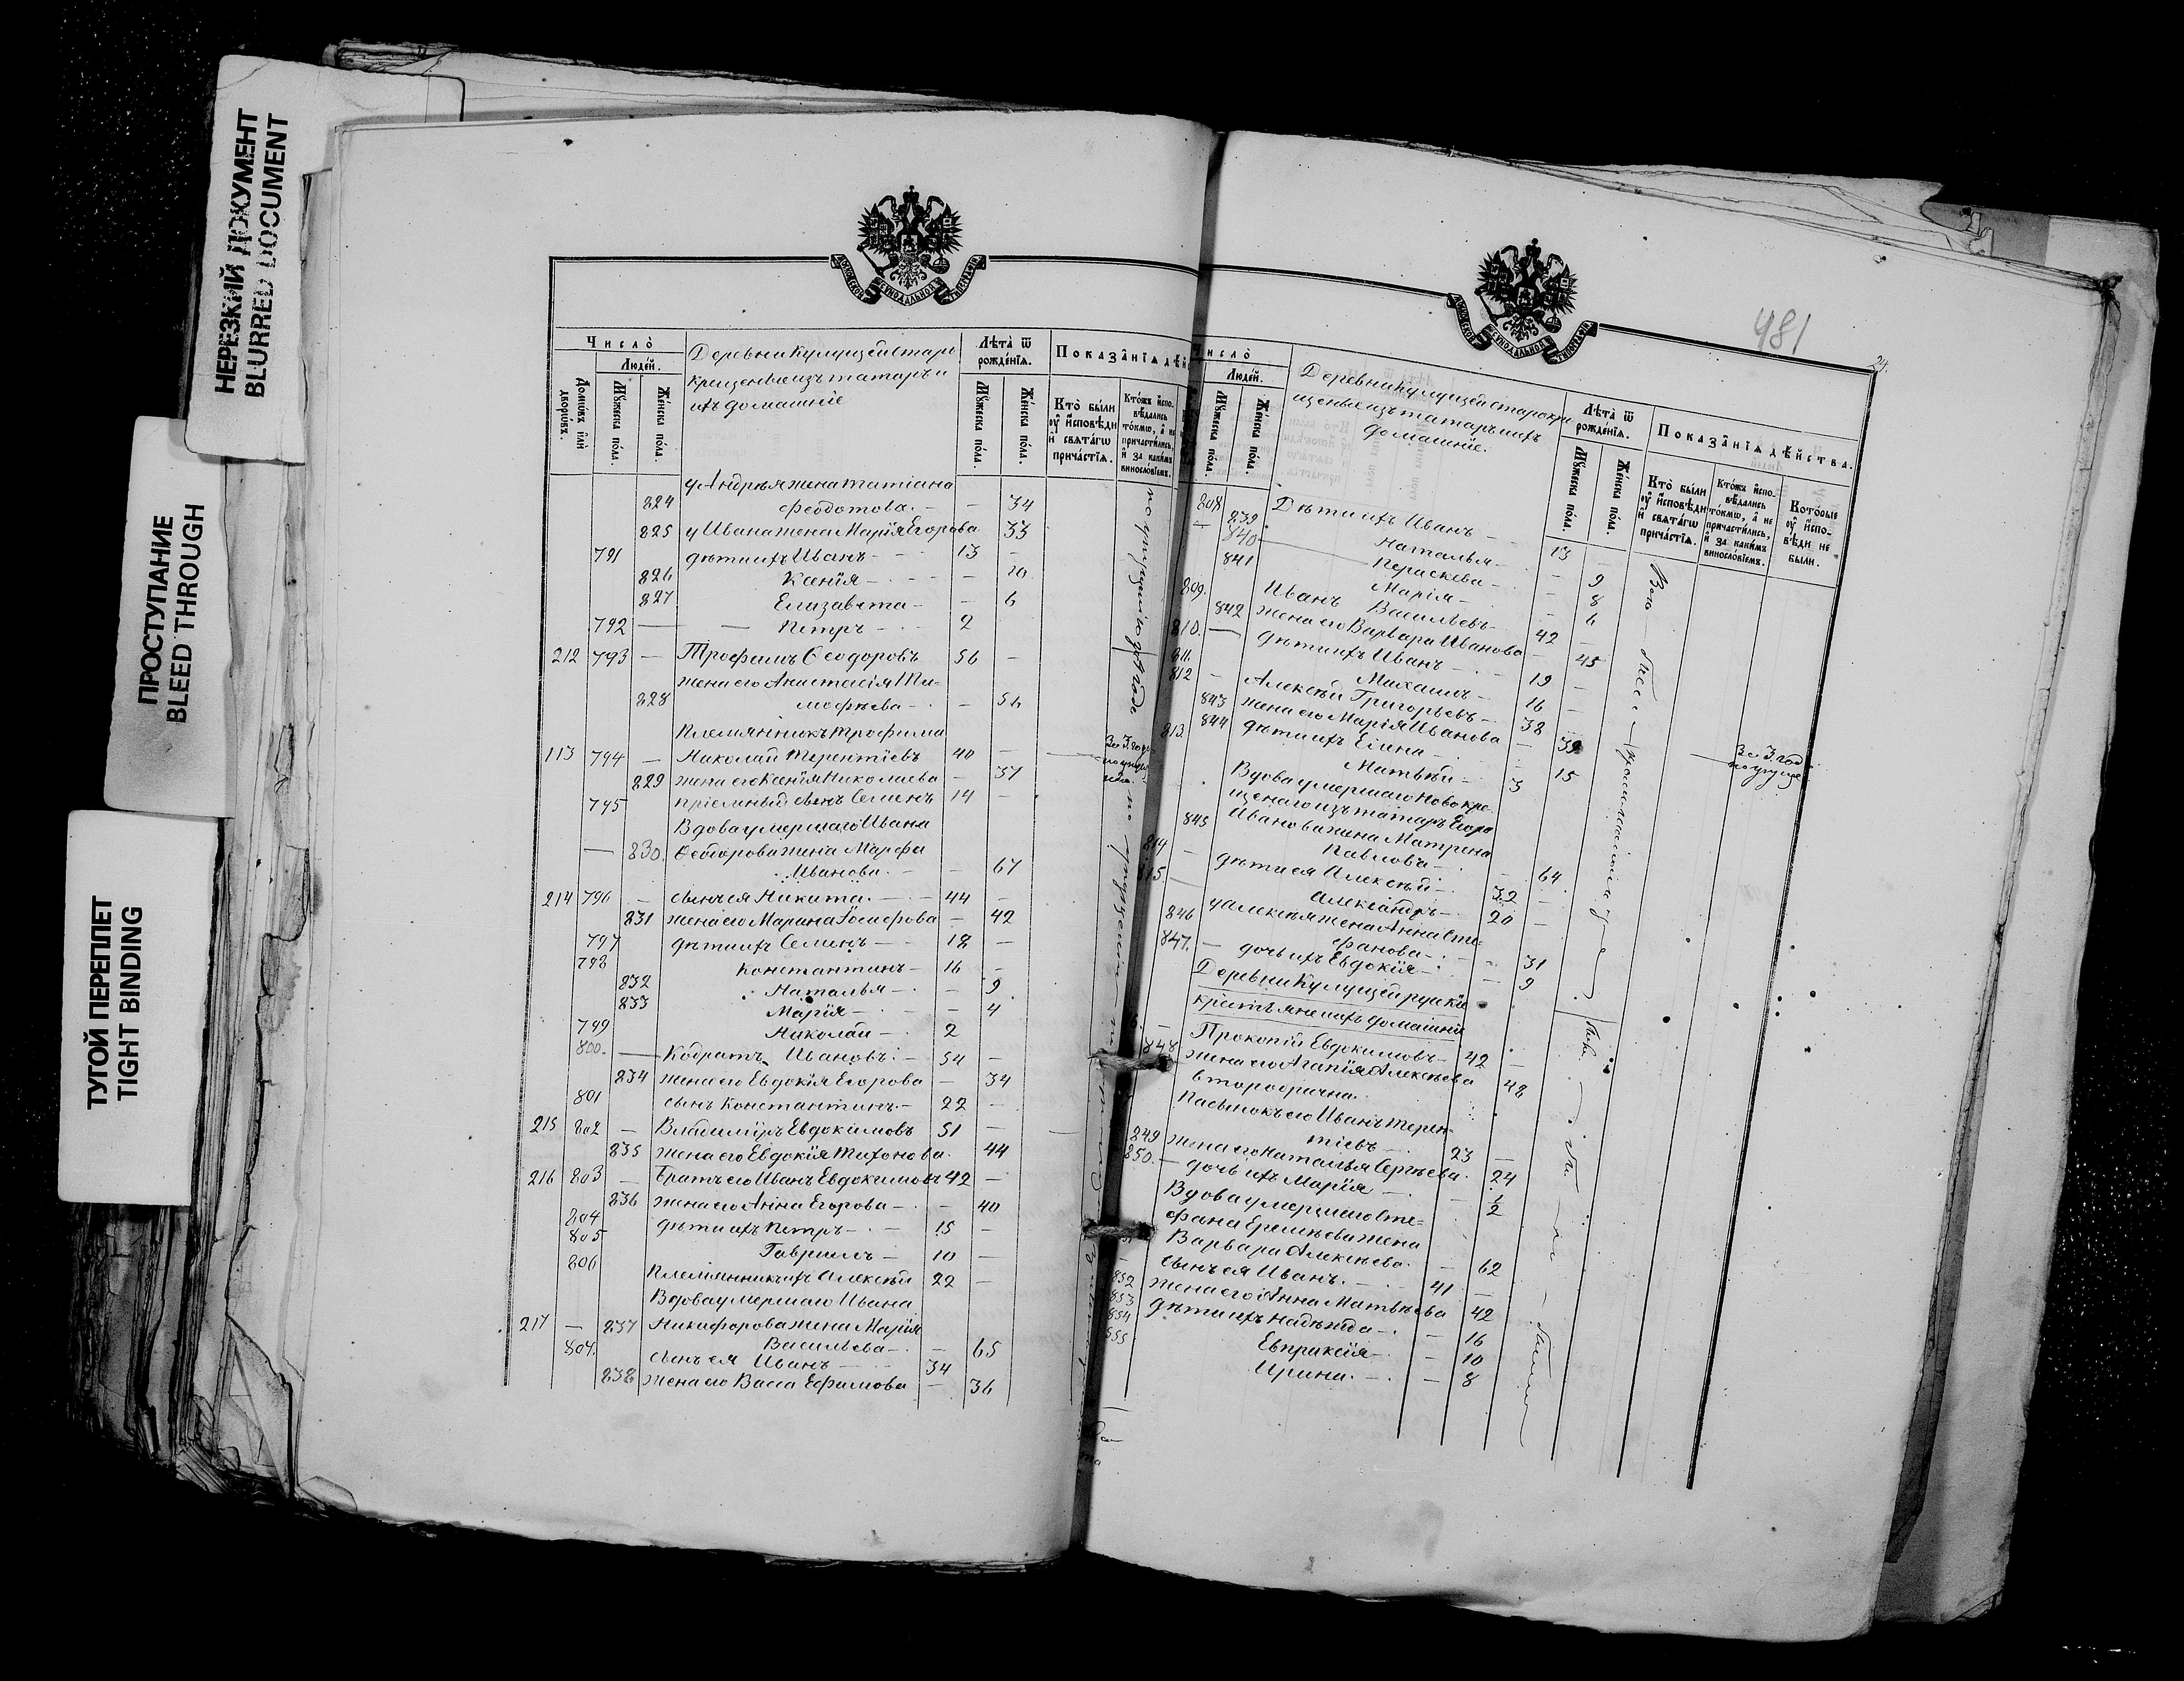 НЕРЕЗКИЙ ДОКУМЕНТ
BLURRED DOCUMENT
ПРОСТУПАНИЕ
BLEED THROUGH
ТУГОЙ ПЕРЕПЛЕТ
TIGHT BINDING
МОСКОВСКОЙ СУНОДАЛЬНОЙ ТИПОГРАФІИ
Число̀
Людей.
Домѡвъ или дворѡвъ.
Мꙋжеска пола.
Женска пола.
Деревни Кулущей старо
крещеные изъ татаръ и
ихъ домашніе
Лѣта ѿ рожденїѧ.
Мꙋжеска пола.
Женска пола.
Показанїѧ дѣй
Кто были ѹ исповѣди и свѧтагѡ причастїѧ.
Ктожъ исповѣдались токмѡ, а не причастились, и за какимъ винословїемъ.
у Андрея жена Татіана
824 Ѳеодотова. — — 34
825 у Ивана жена Марія Егорова 33
791 дѣти ихъ Иванъ — 13 —
826 Ксенія — —
827 Елизавета — — 6
792 — — Петръ — 2
212 793 — Трофимъ Ѳеодоровъ 56 —
жена его Анастасія Ти-
828 моѳѣева — — 56
Племянникъ Трофима
113 794 — Николай Терентіевъ 40 —
829 жена его Ксенія Николаева — 37
795 пріемный сынъ Семенъ 14 —
Вдова умершаго Ивана
— 830. Ѳеодорова жена Марфа
Иванова. — — 67
214 796 — сынъ ея Никита. — 44 —
831 жена его Марина Іосифова — 42
797 дѣти ихъ Семенъ — 18 —
798 Константинъ — 16 —
832 Наталья — — 9
833 Марія — — 4
799 Николай — 2
800. — Кодратъ Ивановъ. — 54 —
834 жена его Евдокія Егорова — 34
801 сынъ Константинъ. — 22 —
215 802 — Владиміръ Евдокимовъ 51 —
835 жена его Евдокія Тихонова. 44
216 803 — Братъ его Иванъ Евдокимовъ 42 —
836 жена его Анна Егорова — — 40
804 дѣти ихъ Петръ — 15 —
805 Гавріилъ — 10 —
806 Племянникъ ихъ Алексѣй 22 —
Вдова умершаго Ивана
217 — 837 Никифорова жена Марія
Васильева — — 65
807. сынъ ея Иванъ — 34
838 жена его Васса Ефимова — 36
За 3. годъ
МОСКОВСКОЙ СУНОДАЛЬНОЙ ТИПОГРАФІИ
481
24.
Число̀
Людей.
Мꙋжеска пола.
Женска пола.
Деревни Кулущей старокре
щеные изъ татаръ и ихъ
домашніе.
Лѣта ѿ рожденїѧ.
Мꙋжеска пола.
Женска пола.
Показанїѧ дѣйства.
Кто были ѹ исповѣди и свѧтагѡ причастїѧ.
Ктожъ исповѣдались токмѡ, а не причастились, и за какимъ винословїемъ.
Которые ѹ исповѣди не были.
808 Дѣти ихъ Иванъ — 13 —
— 839 Наталья — — 9
840. Перасковья — — 8
841 Марія — — 6
809. Иванъ Васильевъ — 42 —
842 жена его Варвара Иванова — 45
810. — дѣти ихъ Иванъ — 19 —
811. Михаилъ — 16 —
812 — Алексѣй Григорьевъ — 38 —
843 жена его Марія Иванова — 39
844 дѣти ихъ Елена — 15
813. Матѳѣй — 3
Вдова умершаго новокре-
щенаго изъ татаръ Егора
845 Иванова жена Матрена
Павлова — — 64.
814 — дѣти ея Алексѣй — 32 —
815. Александръ — 20 —
у Алексѣя жена Анна Сте-
846 фанова — — 31
847. — дочь ихъ Евдокія — — 9
Деревни Кулущей рускіе
крестьяне и ихъ домашніе
— Прокопій Евдокимовъ — 42 —
848 жена его Агапія Алексѣева 48
второбрачна.
Пасынокъ его Иванъ Терен-
тіевъ — 23 —
849 жена его Наталья Сергѣева. 24
850. — дочь ихъ Марія — — 1/2
Вдова умершаго Сте-
фана Еремѣева жена
Варвара Алексѣева. — 62
— сынъ ея Иванъ. — 41 —
852 жена его Анна Матвѣева 42
853 дѣти ихъ Надежда — — 16
854 Евпраксія — — 10
855 Ирина. — — 8
За 3. год